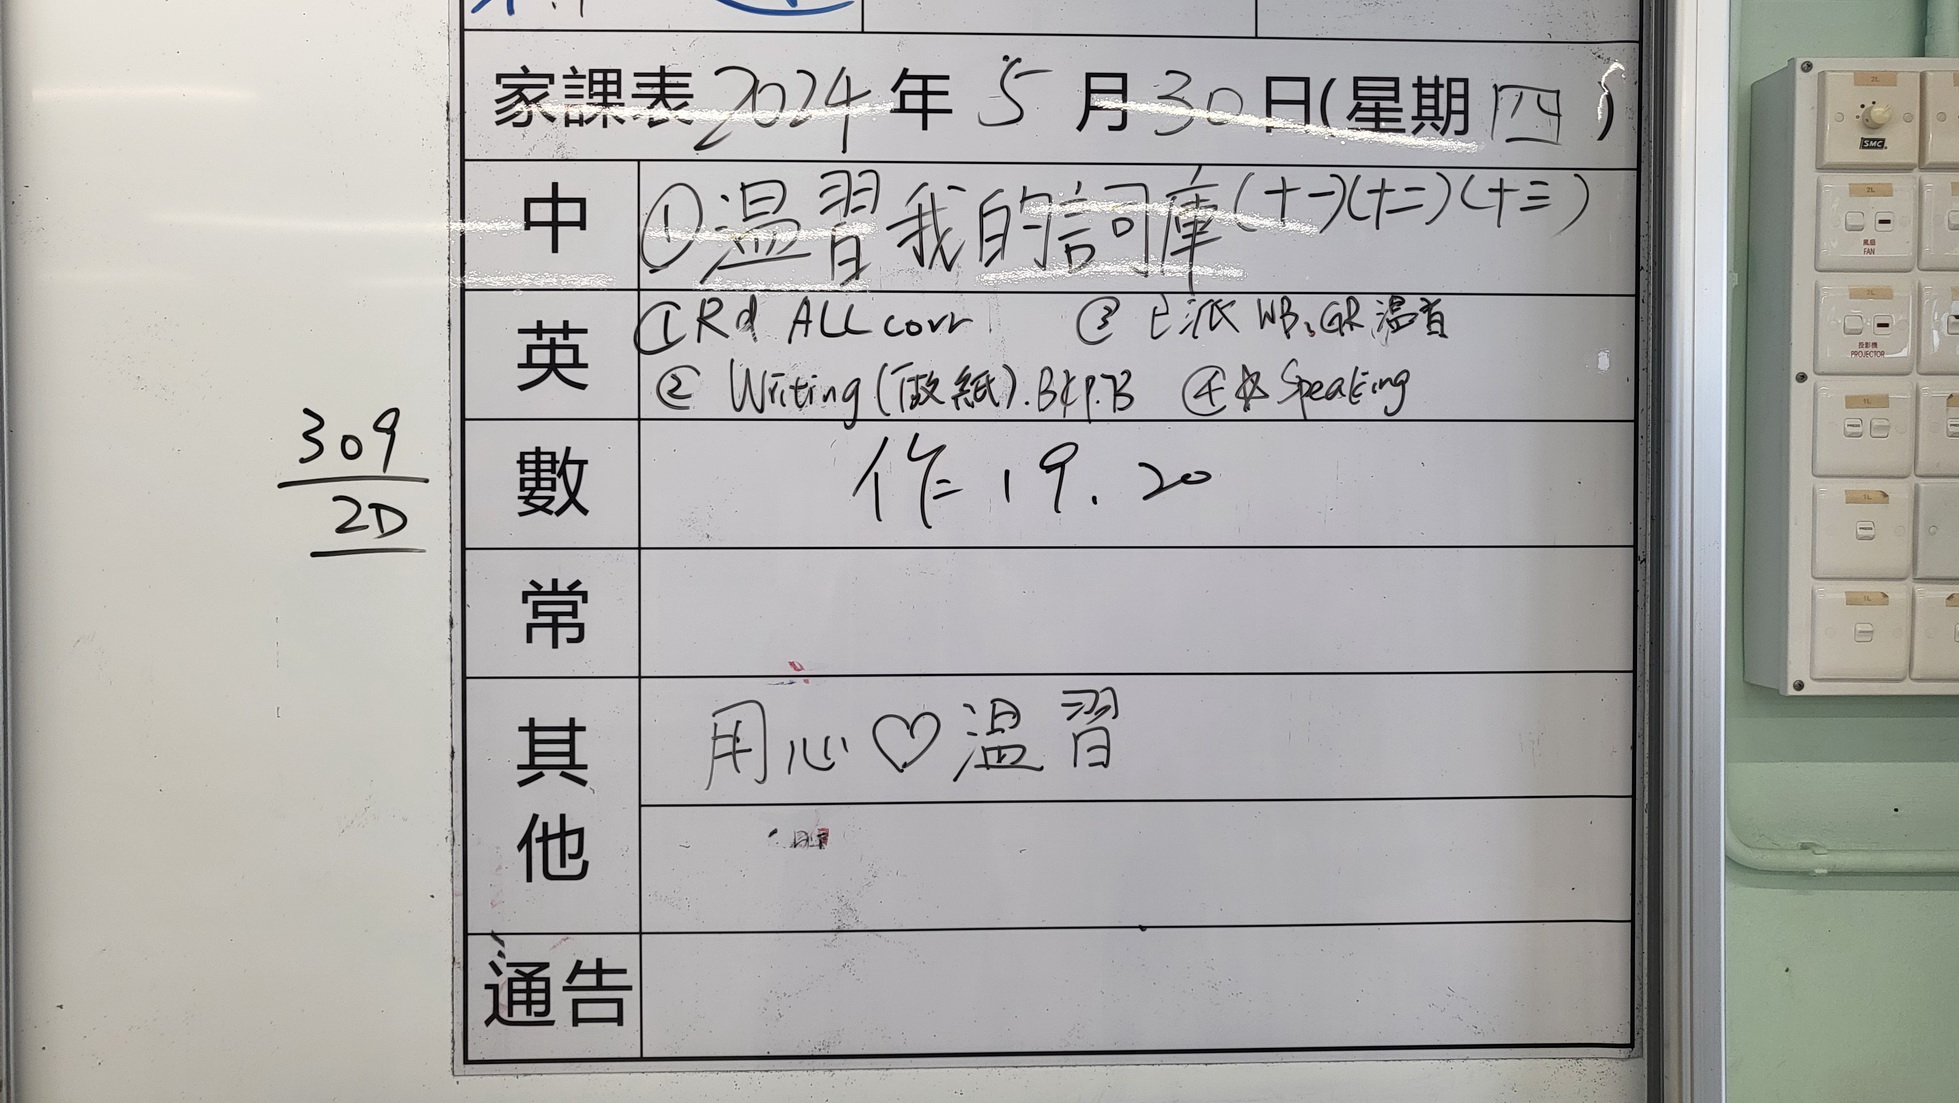 家課表 2024 年 5 月 30 日(星期 四 )
中 ①溫習我的詞庫(十一)(十二)(十三)
英 ①Rd ALL corr ③ 已派 WB、GR 溫習
② Writing (做紙). B&P.B ④ * Speaking
309
2D
數 作 19. 20
常
其他 用心♡溫習
通告
SMC
2L
2L
風扇
FAN
投影機
PROJECTOR
PRESS
1L
PRESS
1L